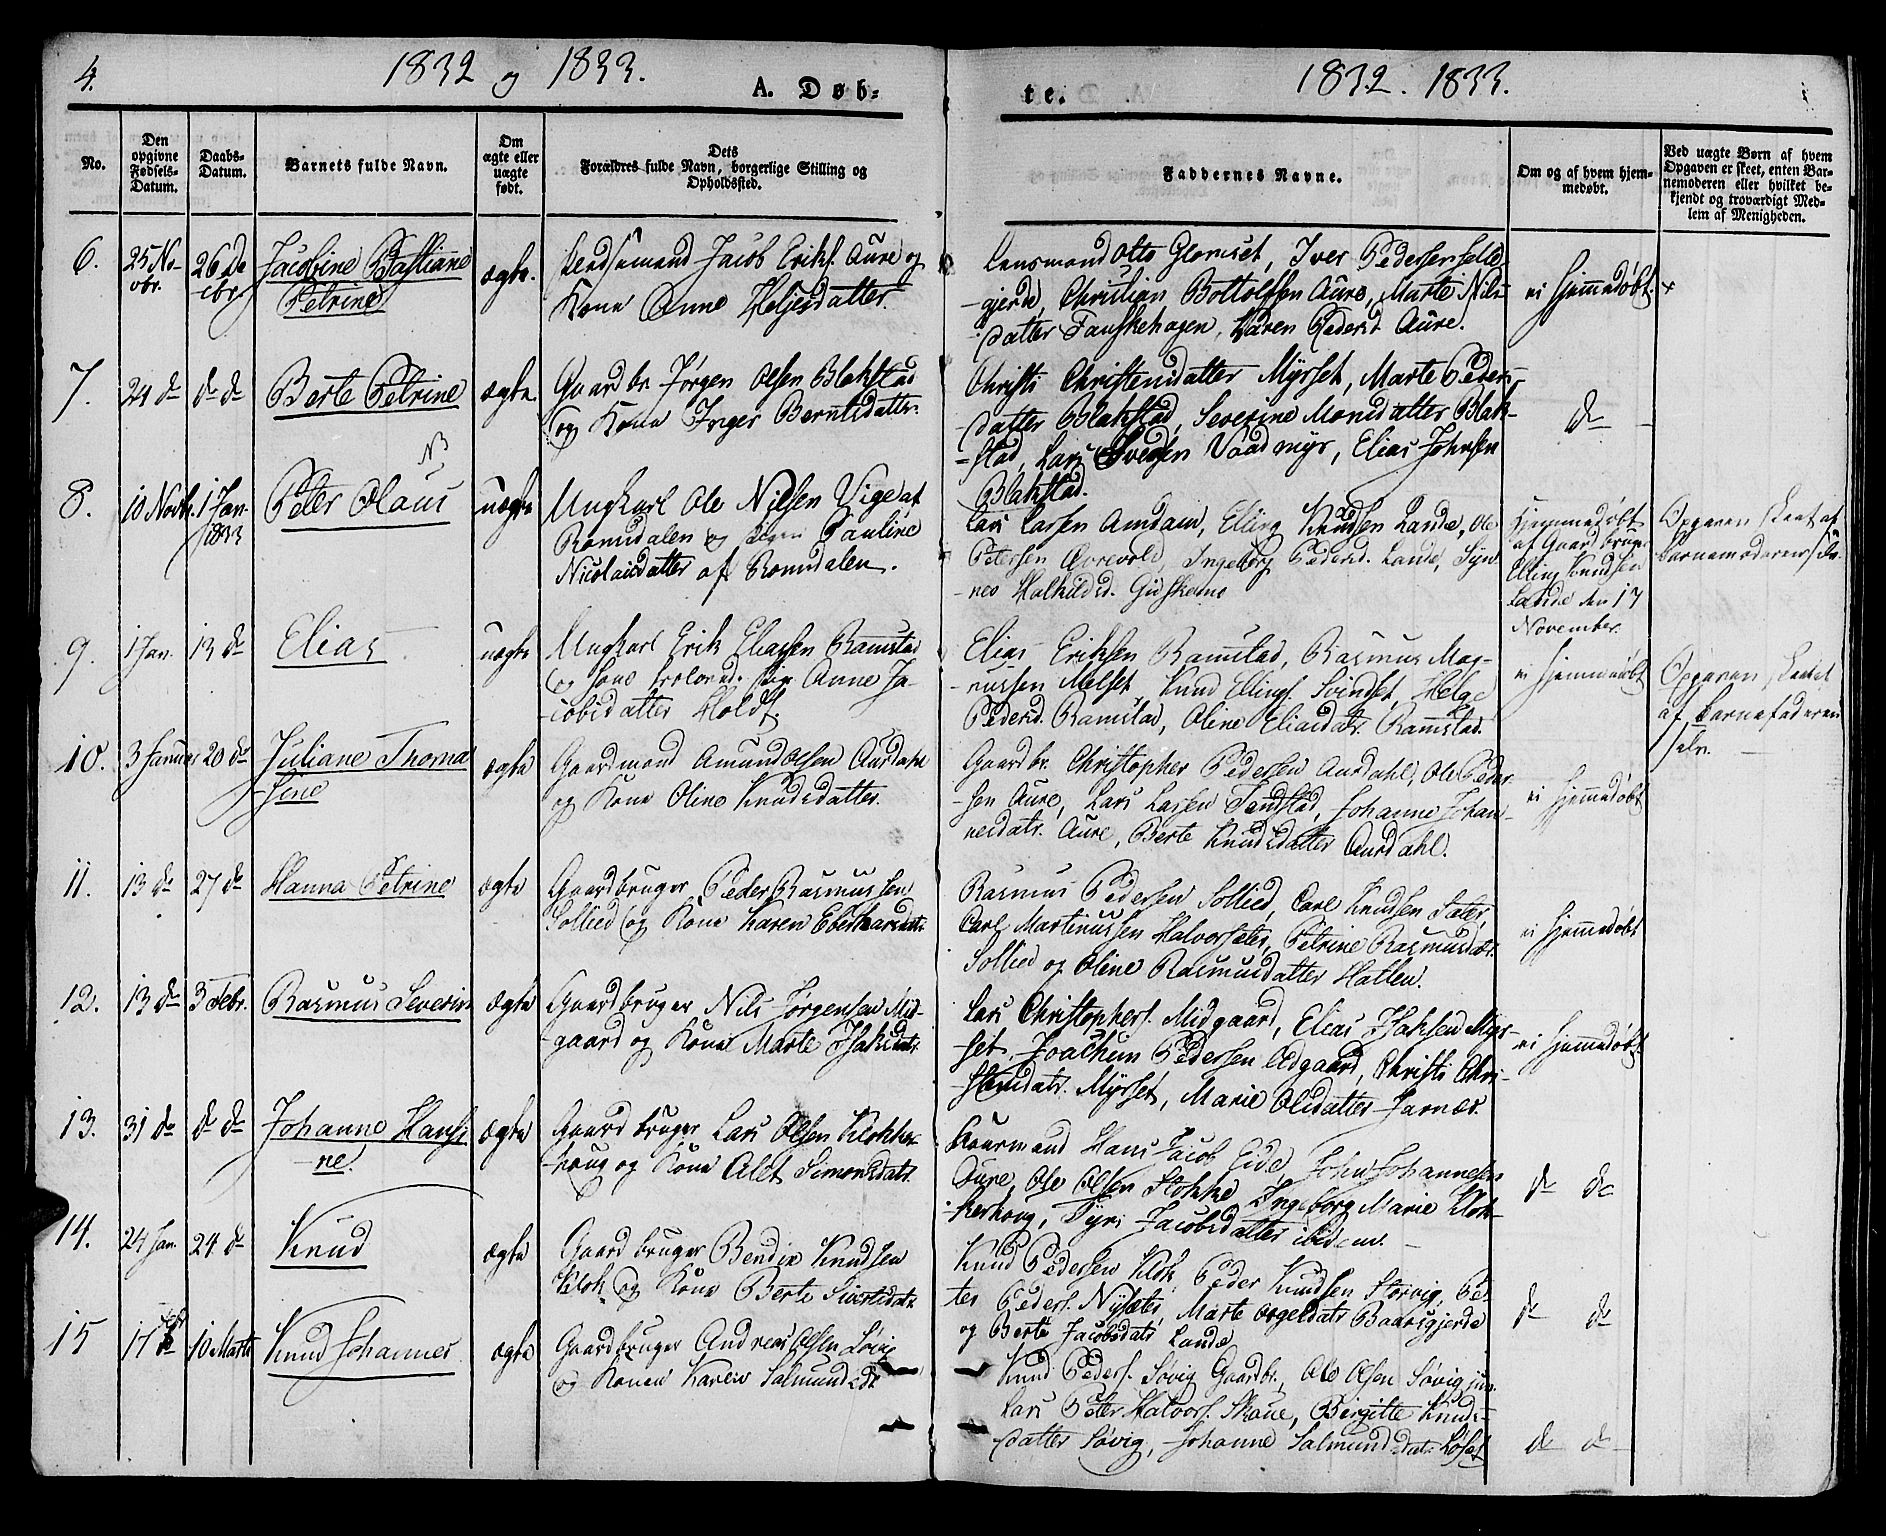 4.
1832 og 1833.
A. Døb-
te.
1832. 1833.
No.
Den opgivne Fødsels-Datum.
Daabs-Datum.
Barnets fulde Navn.
Om ægte eller uægte født.
Dets
Forældres fulde Navn, borgerlige Stilling og
Opholdssted.
Faddernes Navne.
Om og af hvem hjem-
medøbt.
Ved uægte Børn af hvem
Opgaven er skeet, enten Bar-
nemoderen eller hvilket be-
kjendt og troværdigt Med-
lem af Menigheden.
6. 25 No- 26 De Jacobine Bastiane ægte. Lendsmand Jacob Eriks. Aure og
vbr. cbr Petrine Kone Anne Helgesdatter.
Lensmand Otto Glomset, Iver Pedersen Felle-
-gjerde, Christian Bottolfsen Aure, Marte Nils-
datter Fauskehagen, Karen Pedersd. Aure.
ei Hjemmedøbt.
7. 24 do do do Berte Petrine ægte. Gaardbr. Jørgen Olsen Blakstad
og Kone Inger Berntsdatter.
Christi Christensdatter Myrset, Marte Peders-
datter Blakstad, Severine Monsdatter Blak-
-stad, Lars Svensen Vaadmyr, Elias Johnsen
Blakstad.
do
NB
8. 10 Novbr. 1 Jan. Peter Olaus uægte Ungkarl Ole Nielsen Vige af
1833 Romsdalen og Pigen Pauline
Nicolaisdatter af Romsdalen.
Lars Larsen Amdam, Elling Knudsen Lande, Ole
Petersen Aurevold, Ingeborg Pedersd. Lande, Syn-
-neve Halkildsd. Gudskeme
Hjemmedøbt
af Gaardbruger
Elling Knudsen
Lande den 17
November.
Opgaven skeet af
Barnemoderen selv.
9. 1 Jan. 13 do Elias uægte Ungkarl Erik Eliassen Ramstad
og hans trolovede Pige Anne Ja-
-cobsdatter Holdt.
Elias Eriksen Ramstad, Rasmus Mag-
-nussen Melset, Knud Ellings. Svindset, Helge
Pedersd. Ramstad, Oline Eliasdatr. Ramstad.
ei Hjemmedøbt
Opgaven skeet
af Barnefaderen
selv.
10. 3 Januar 20 do Juliane Thoma- ægte Gaardmand Amund Olsen Aurdahl
-sine og Kone Oline Knudsdatter.
Gaardbr. Christopher Pedersen Aurdahl, Ole Peder-
-sen Aure, Lars Larsen Tandstad, Johanne Johan-
nesdatr. Aure, Berte Knudsdatter Aurdahl.
ei Hjemmedøbt
11. 13 do 27 do Hanna Petrine ægte Gaardbruger Peder Rasmussen
Sollied og Kone Karen Eberhardsdatr.
Rasmus Pedersen Sollied, Carl Knudsen Sater,
Carl Martinussen Halvorsæter, Petrine Rasmusdatr.
Sollied og Oline Rasmusdatter Hatlen.
ei Hjemmedøbt
12. 13 do 3 Febr. Rasmus Severin ægte Gaardbruger Nils Jørgensen Mid-
-gaard og Kone Marte Isaksdatr.
Lars Christophers. Midgaard, Elias Isaksen Myr-
-set, Joachum Pedersen Ødgaard, Christi Chri-
-stensdatr. Myrset, Marie Olsdatter Jarnæs.
ei Hjemmedøbt.
13. 31 do do do Johanne Hansi- ægte Gaardbruger Lars Olsen Klokker-
-ne. -houg og Kone Alet Simonsdatr.
Kaarmand Hans Jacob Eide, John Johannesen
Aure, Ole Olsen Stokke, Ingeborg Marie Klok-
-kerhoug, Syri Jacobsdatter ibidem.
do do
14. 24 Jan. 24 do Knud ægte Gaardbruger Bendix Knudsen
Klok og Kone Berte Sivertsdatr.
Knud Pedersen Klok, Peder Knudsen Storvig, Pet-
ter Peders. Nysæter, Marte Vegeldatr. Baarsgjerde
og Berte Jacobsdatr. Lande
do do
15 17 Febr. 10 Marts Knud Johannes ægte Gaardbruger Andreas Olsen Søvig
og Konen Karen Salmundsdr.
Knud Peders. Søvig Gaardbr., Ole Olsen Søvig jun.
Lars Peter Halvors. Skoue, Birgitte Knuds-
datter Søvig, Johanne Salmundsdatr. Løset
do do